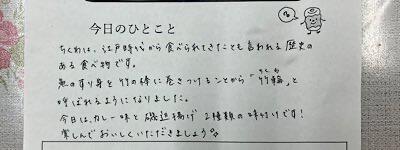 今日のひとこと
ちくわは、江戸時代から食べられてきたとも言われる歴史の
ある食べ物です。
魚のすり身を竹の棒に巻きつけることから「竹輪」と
ちくわ
呼ばれるようになりました。
今日は、カレー味と磯辺揚げ2種類の味付けです!
楽しんでおいしくいただきましょう。